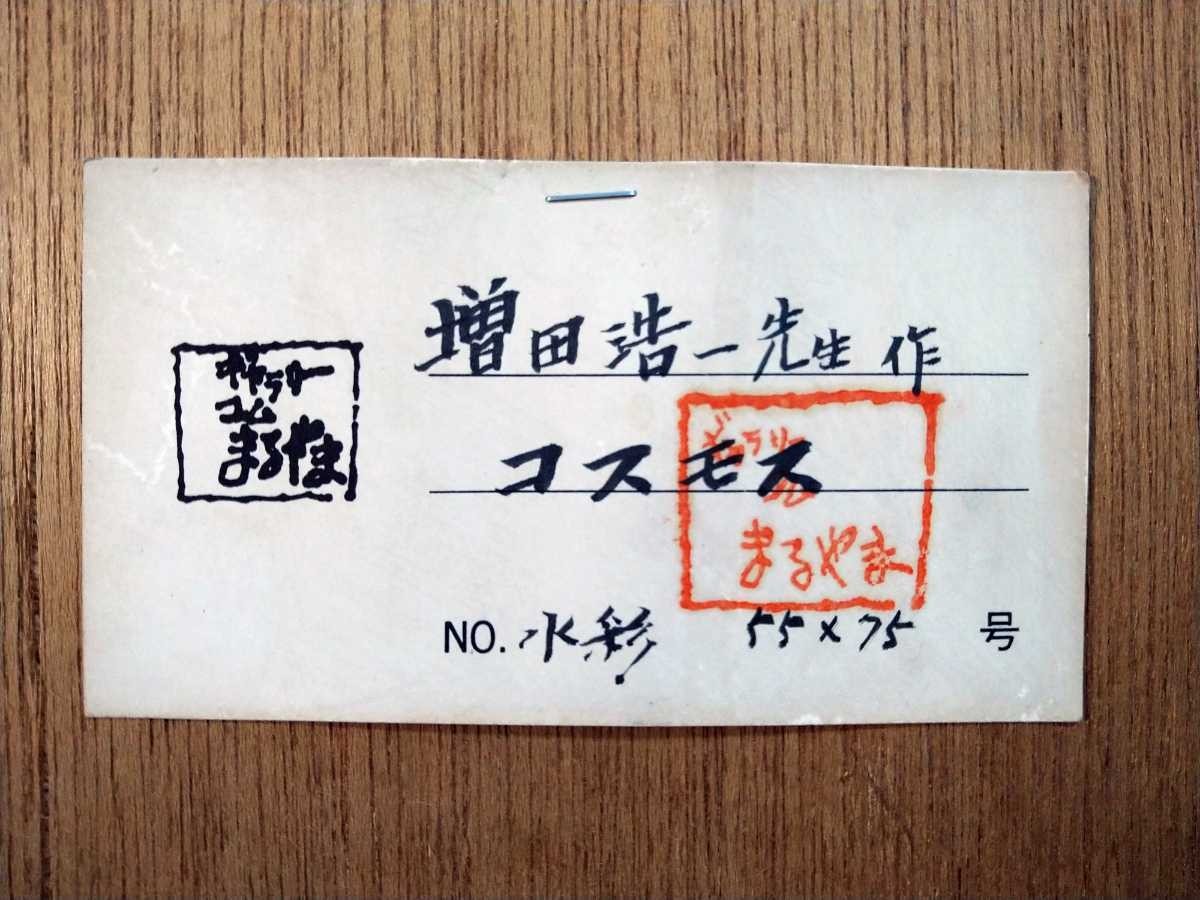 増田浩一先生 作
ギャラリー
コム
まるやま
コスモス
ギャラリー
コム
まるやま
NO. 水彩 55×75 号